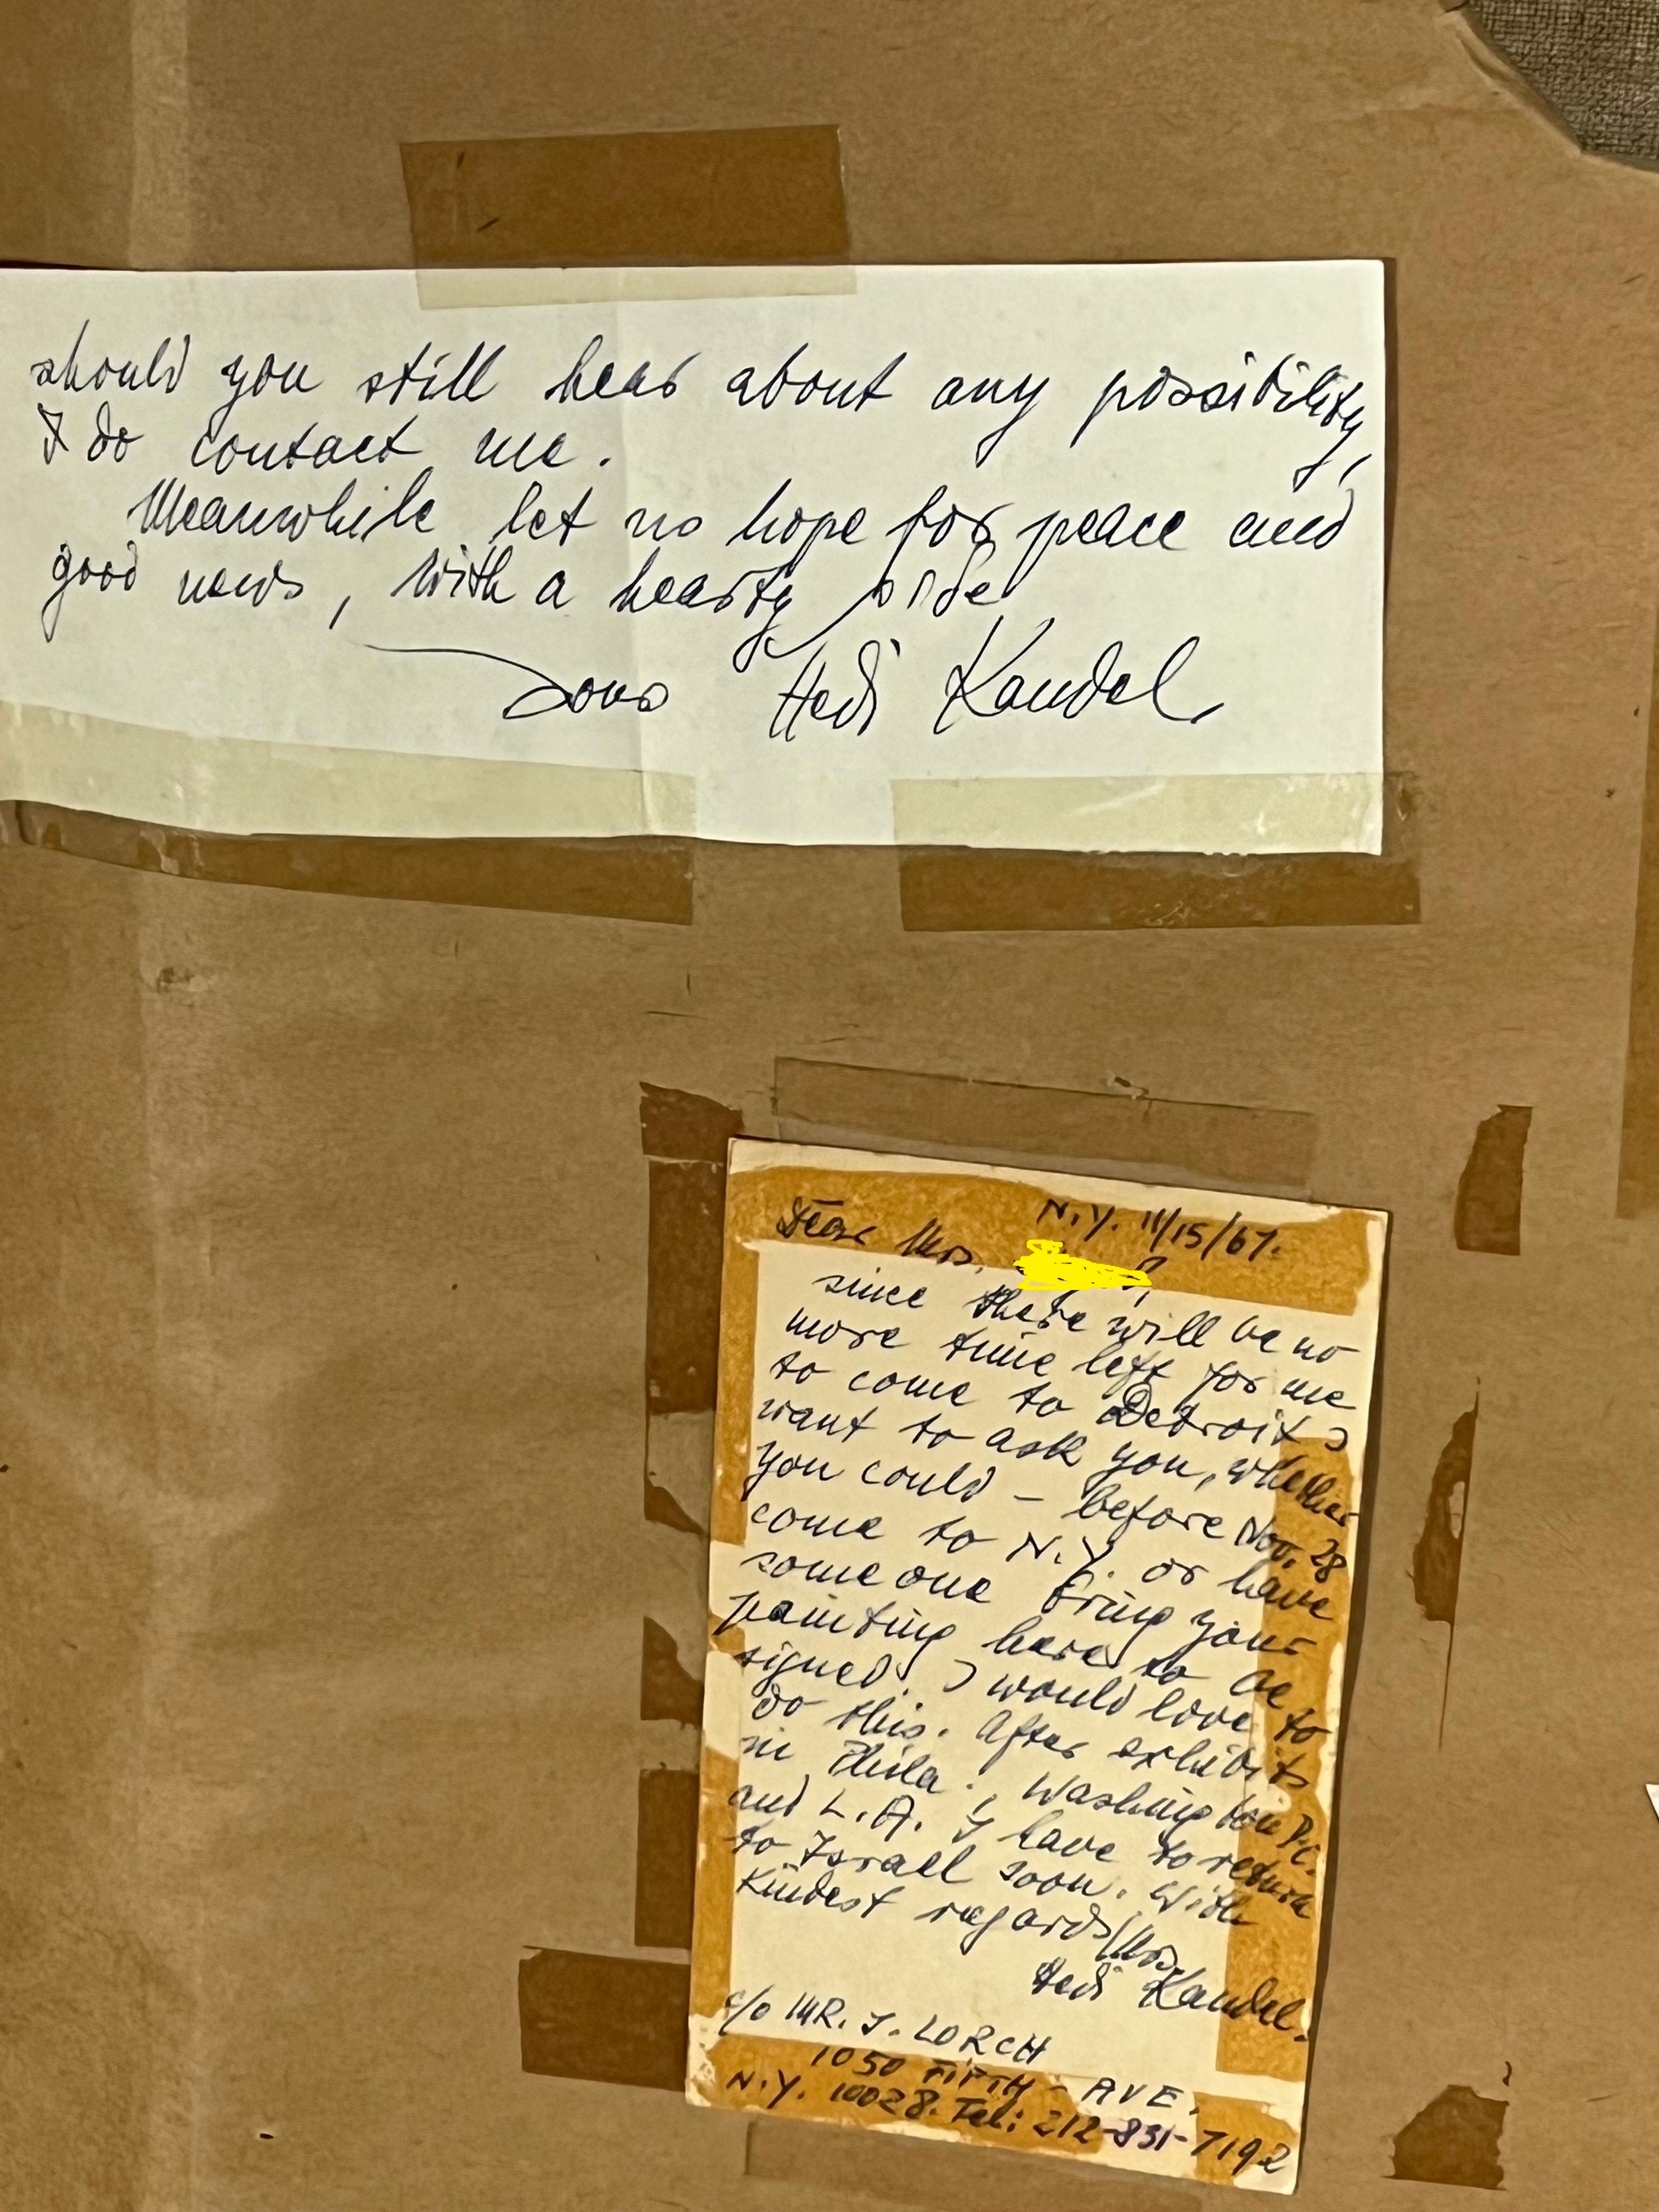 should you still hear about any possibility,
do contact me.
Meanwhile let us hope for peace and
good news, with a hearty
Yours Hedi Kandel
N.Y. 11/15/67.
Dear Mrs.
since there will be no
more time left for me
to come to Detroit I
want to ask you, whether
you could - before Nov. 28
come to N.Y. or have
someone bring your
painting here to be
signed. I would love to
do this. After exhibits
in Phila., Washington D.C.
and L.A. I have to return
to Israel soon. With
kindest regards Mrs.
Hedi Kandel.
c/o MR. J. LORCH
1050 FIFTH - AVE.
N.Y. 10028. Tel: 212-831-7192